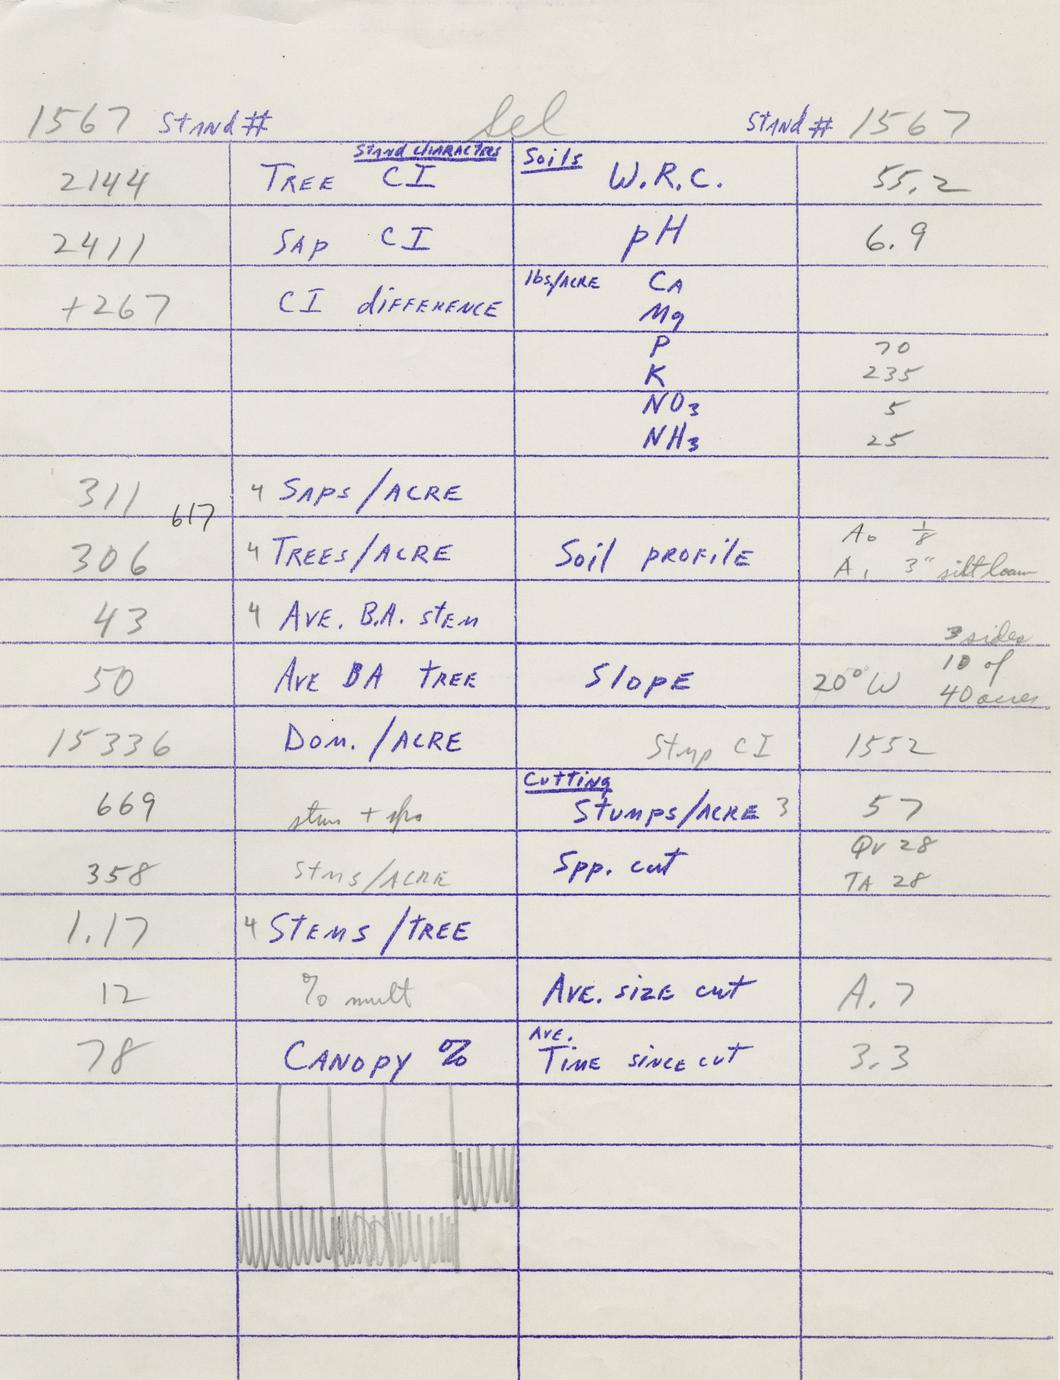 1567 Stand # Sel Stand # 1567
Stand Characters Soils
2144 Tree CI W.R.C. 55.2
2411 Sap CI pH 6.9
+267 CI difference lbs/Acre Ca
Mg
P 70
K 235
NO3 5
NH3 25
311 4 Saps/Acre
617
306 4 Trees/Acre Soil profile A0 1/8
A1 3" silt loam
43 4 Ave. B.A. stem
50 Ave BA tree Slope 20° W 3 sides
10 of
40 acres
15336 Dom./Acre Stmp CI 1552
Cutting
669 stms + sps Stumps/Acre 3 57
358 Stms/Acre Spp. cut Qv 28
TA 28
1.17 4 Stems/tree
12 % mult Ave. size cut A.7
78 Canopy % Ave. Time since cut 3.3